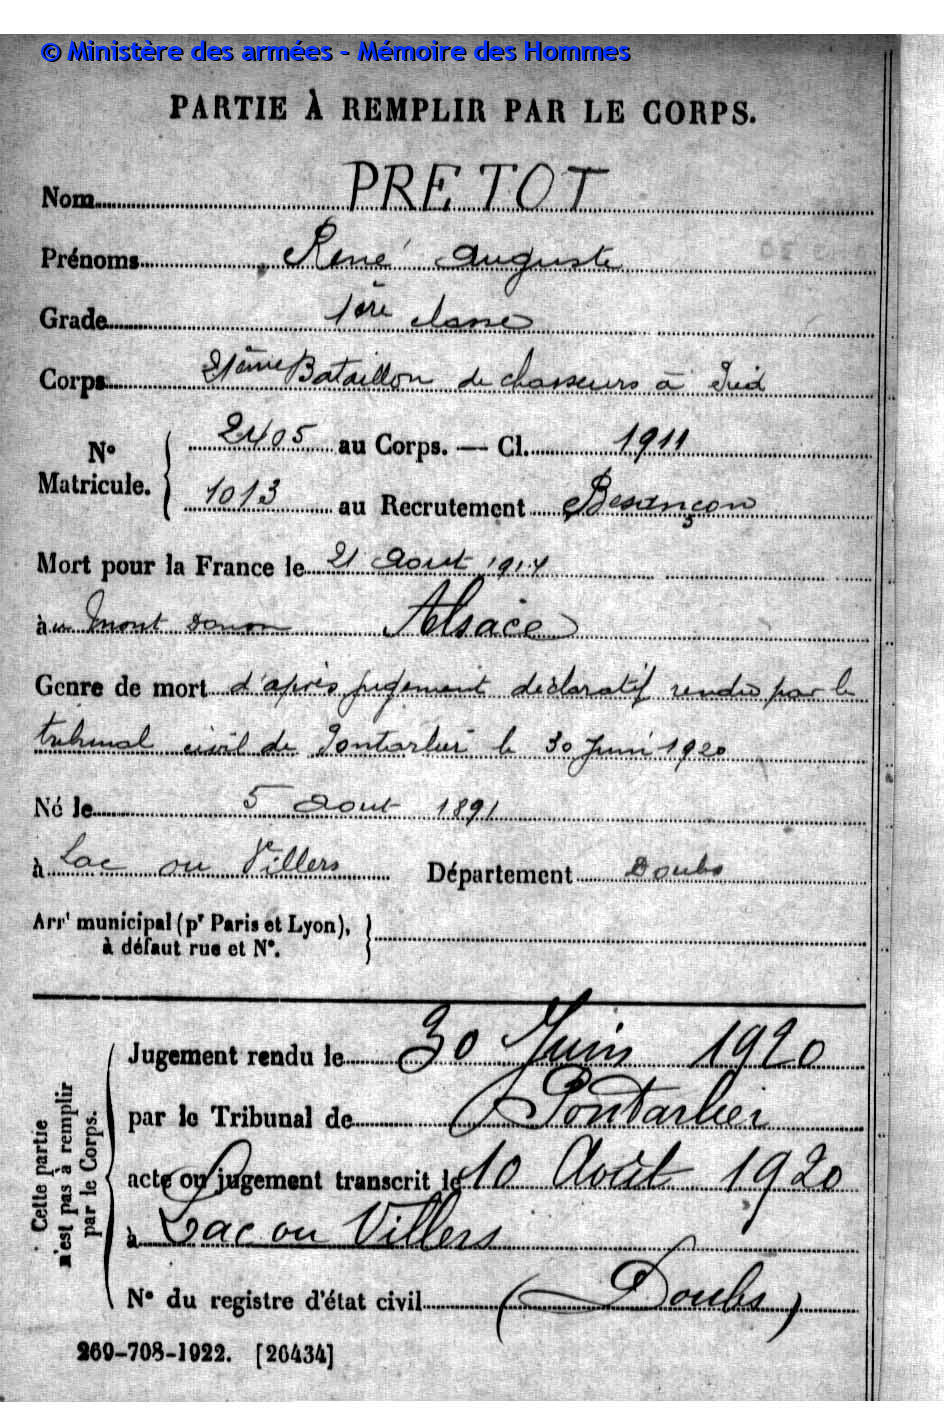 © Ministère des armées - Mémoire des Hommes
PARTIE À REMPLIR PAR LE CORPS.
Nom PRETOT
Prénoms René Auguste
Grade 1ère classe
Corps 21ème Bataillon de chasseurs à Pied
N° Matricule. 2405 au Corps. — Cl. 1911
1013 au Recrutement Besançon
Mort pour la France le 21 Aout 1914
à Mont Donon Alsace
Genre de mort d'après jugement déclaratif rendu par le
tribunal civil de Pontarlier le 30 Juin 1920
Né le 5 Aout 1891
à Lac ou Villers Département Doubs
Arrt municipal (pr Paris et Lyon),
à défaut rue et N°.
Cette partie
n'est pas à remplir
par le Corps.
Jugement rendu le 30 Juin 1920
par le Tribunal de Pontarlier
acte ou jugement transcrit le 10 Août 1920
à Lac ou Villers
N° du registre d'état civil (Doubs)
269-708-1922. [26434]